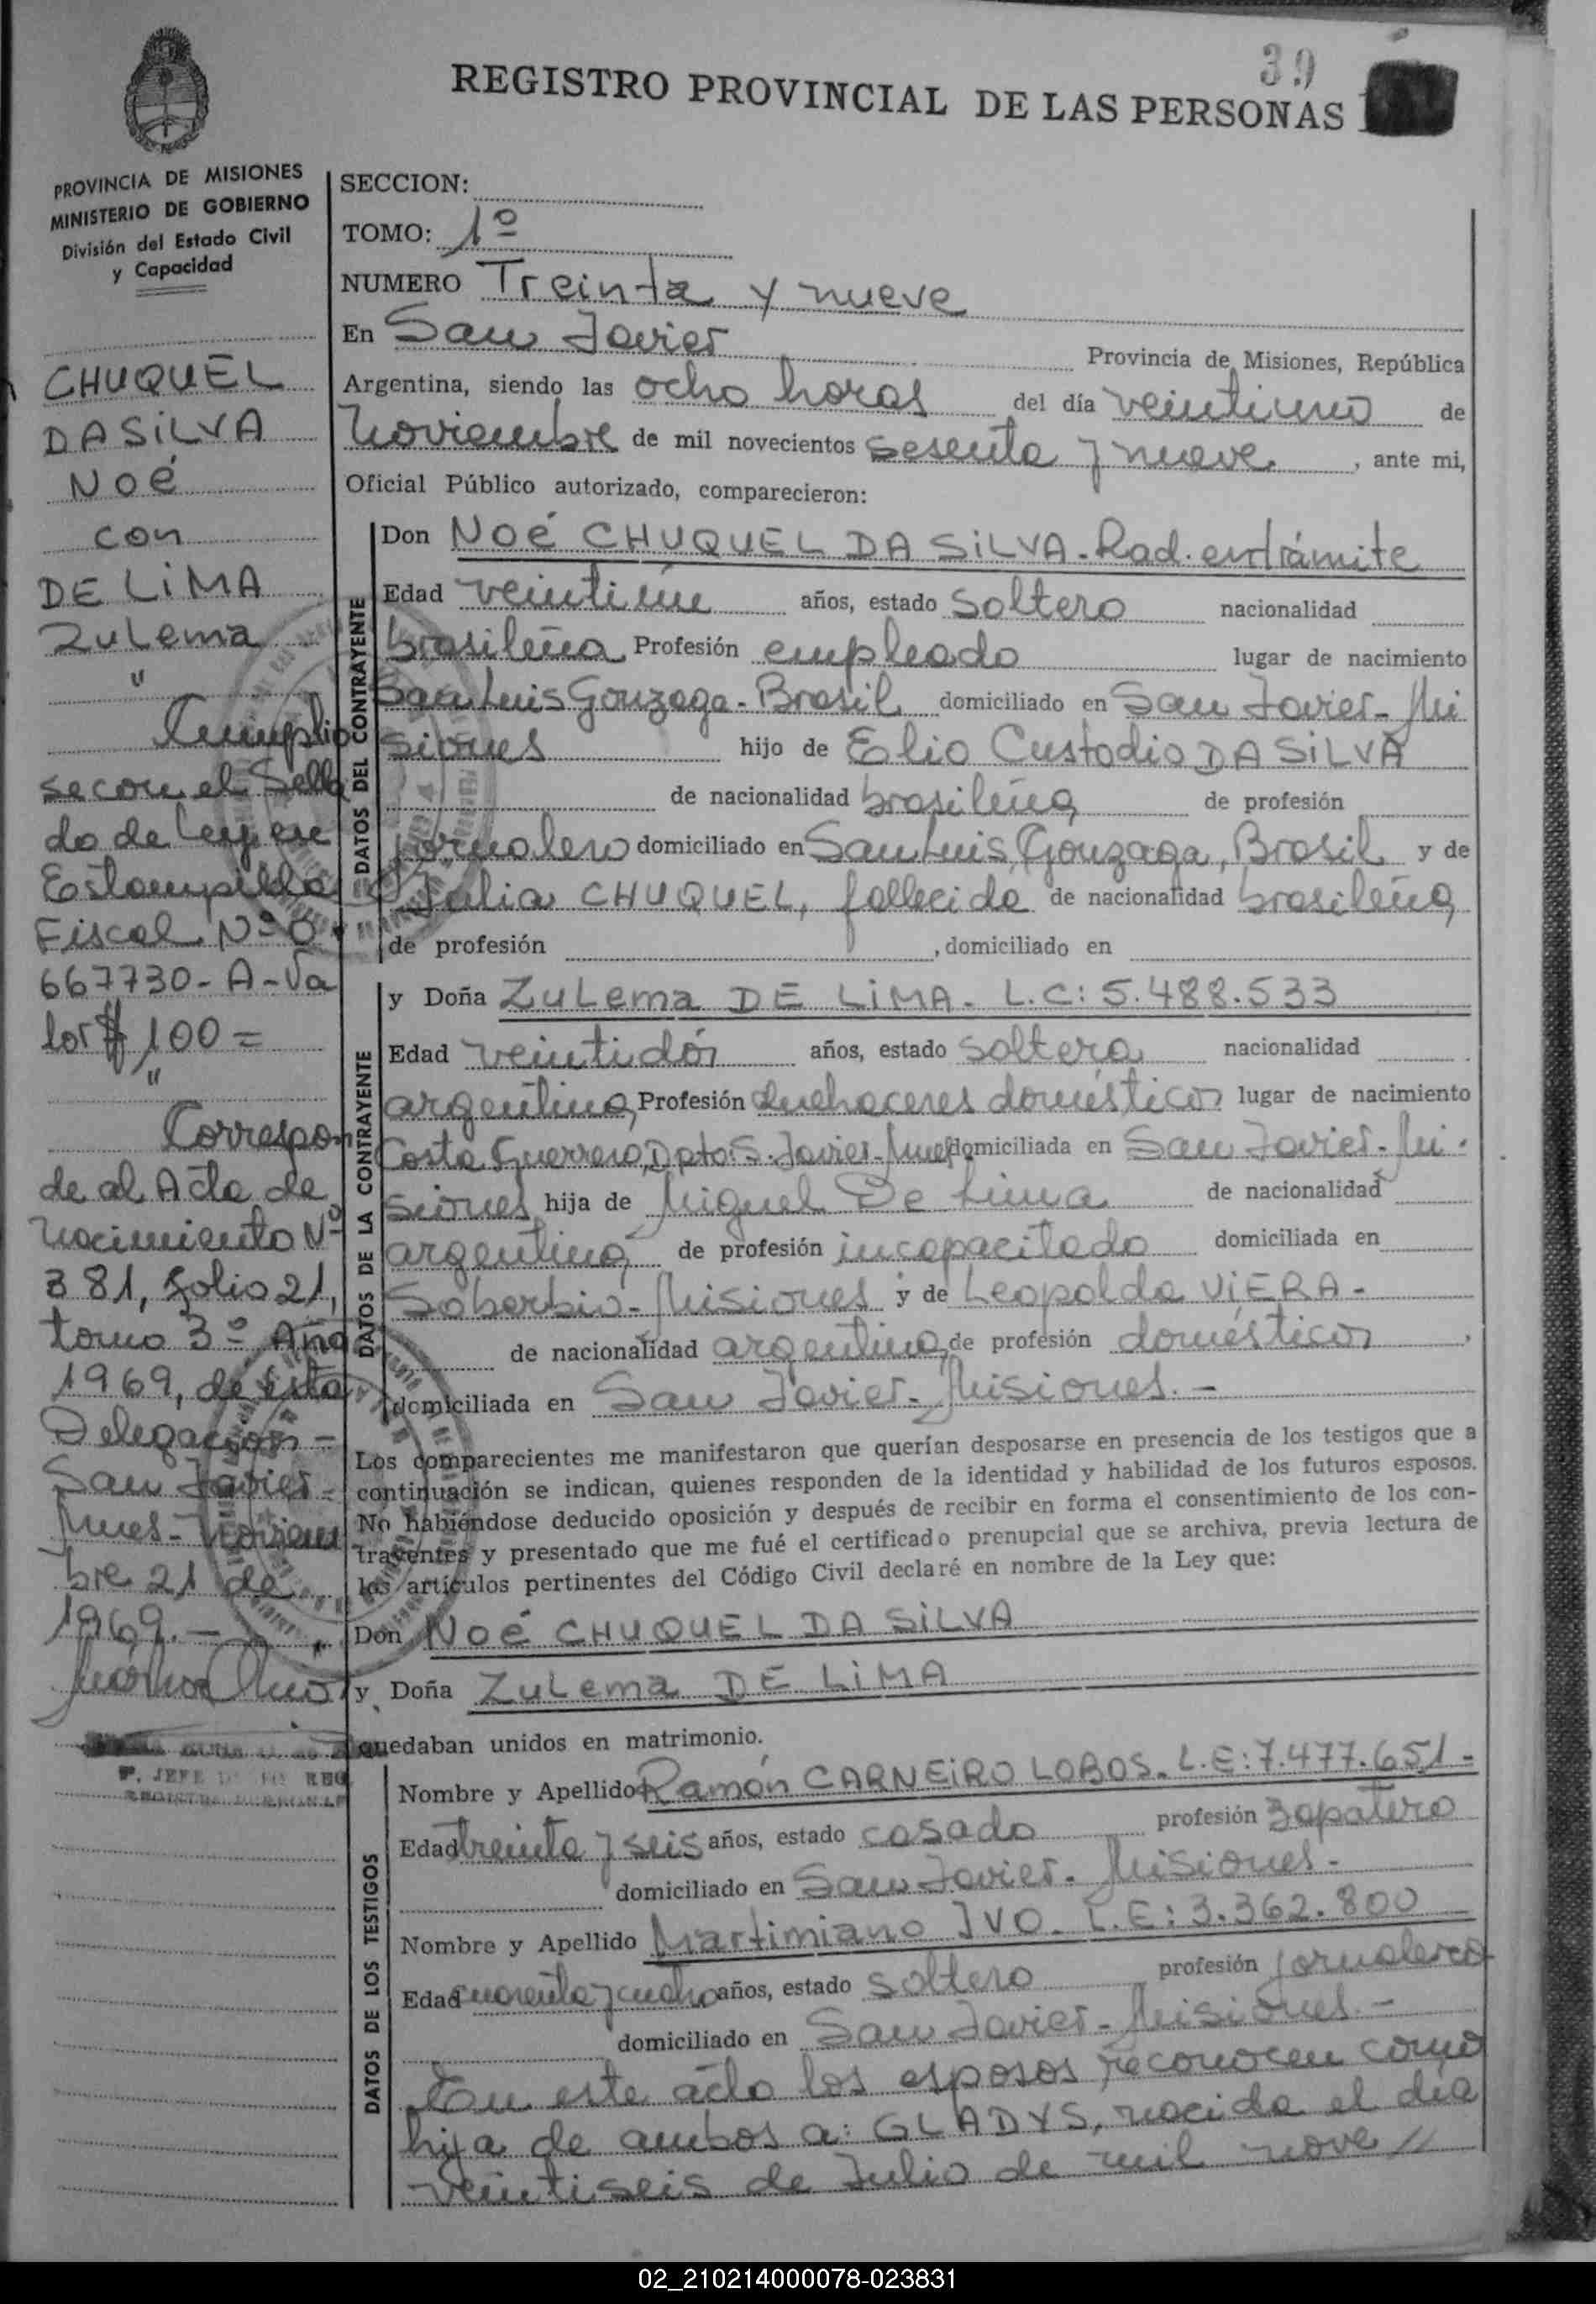 39
REGISTRO PROVINCIAL DE LAS PERSONAS
PROVINCIA DE MISIONES
MINISTERIO DE GOBIERNO
División del Estado Civil
y Capacidad
CHUQUEL
DA SILVA
NOÉ
con
DE LIMA
Zulema
"
Cumplio
se con el Sella
do de Ley en
Estampilla
Fiscal Nº 0
667730-A-Va
lor $ 100=
"
Correspon
de al Acta de
nacimiento Nº
381, folio 21,
tomo 3º Año
1969, de ésta
Delegación-
San Javier-
Mnes-Noviem
bre 21 de
1969.-
P. JEFE
SECCION:
TOMO: 1º
NUMERO Treinta y nueve
En San Javier Provincia de Misiones, República
Argentina, siendo las ocho horas del día veintiuno de
Noviembre de mil novecientos sesenta y nueve, ante mi,
Oficial Público autorizado, comparecieron:
DATOS DEL CONTRAYENTE
Don NOÉ CHUQUEL DA SILVA-Rad. en trámite
Edad veintiún años, estado soltero nacionalidad
brasileña Profesión empleado lugar de nacimiento
San Luis Gonzaga-Brasil domiciliado en San Javier-Mi
siones hijo de Elio Custodio DA SILVA
de nacionalidad brasileña de profesión
jornalero domiciliado en San Luis Gonzaga, Brasil y de
Julia CHUQUEL, fallecida de nacionalidad brasileña
de profesión , domiciliado en
DATOS DE LA CONTRAYENTE
y Doña Zulema DE LIMA. L.C: 5.488.533
Edad veintidós años, estado soltera nacionalidad
argentina, Profesión quehaceres domésticos lugar de nacimiento
Costa Guerrero, Dpto. S. Javier-Mnes domiciliada en San Javier-Mi-
siones hija de Miguel De Lima de nacionalidad
argentina, de profesión incapacitado domiciliada en
Soberbio-Misiones y de Leopolda VIERA-
de nacionalidad argentina, de profesión domésticos ,
domiciliada en San Javier-Misiones.-
Los comparecientes me manifestaron que querían desposarse en presencia de los testigos que a
continuación se indican, quienes responden de la identidad y habilidad de los futuros esposos.
No habiéndose deducido oposición y después de recibir en forma el consentimiento de los con-
trayentes y presentado que me fué el certificado prenupcial que se archiva, previa lectura de
los artículos pertinentes del Código Civil declaré en nombre de la Ley que:
Don NOÉ CHUQUEL DA SILVA
y Doña Zulema DE LIMA
quedaban unidos en matrimonio.
DATOS DE LOS TESTIGOS
Nombre y Apellido Ramón CARNEIRO LOBOS. L.E: 7.477.651-
Edad treinta y seis años, estado casado profesión zapatero
domiciliado en San Javier-Misiones-
Nombre y Apellido Martimiano IVO. L.E: 3.362.800
Edad cuarenta y cuatro años, estado soltero profesión jornalero
domiciliado en San Javier-Misiones.-
En este acto los esposos reconocen como
hija de ambos a: GLADYS, nacida el día
veintiseis de Julio de mil nove//
02_210214000078-023831